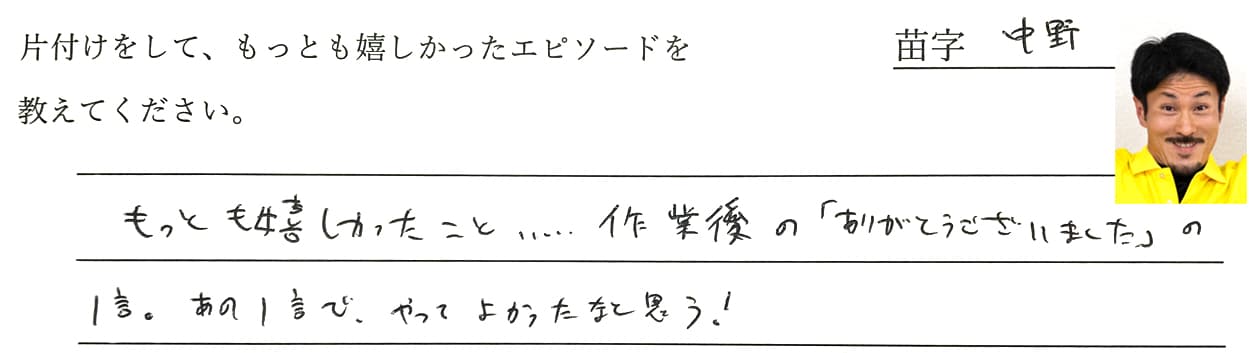 片付けをして、もっとも嬉しかったエピソードを
教えてください。
苗字 中野
もっとも嬉しかったこと…… 作業後の「ありがとうございました」の
1言。あの1言で、やってよかったなと思う!